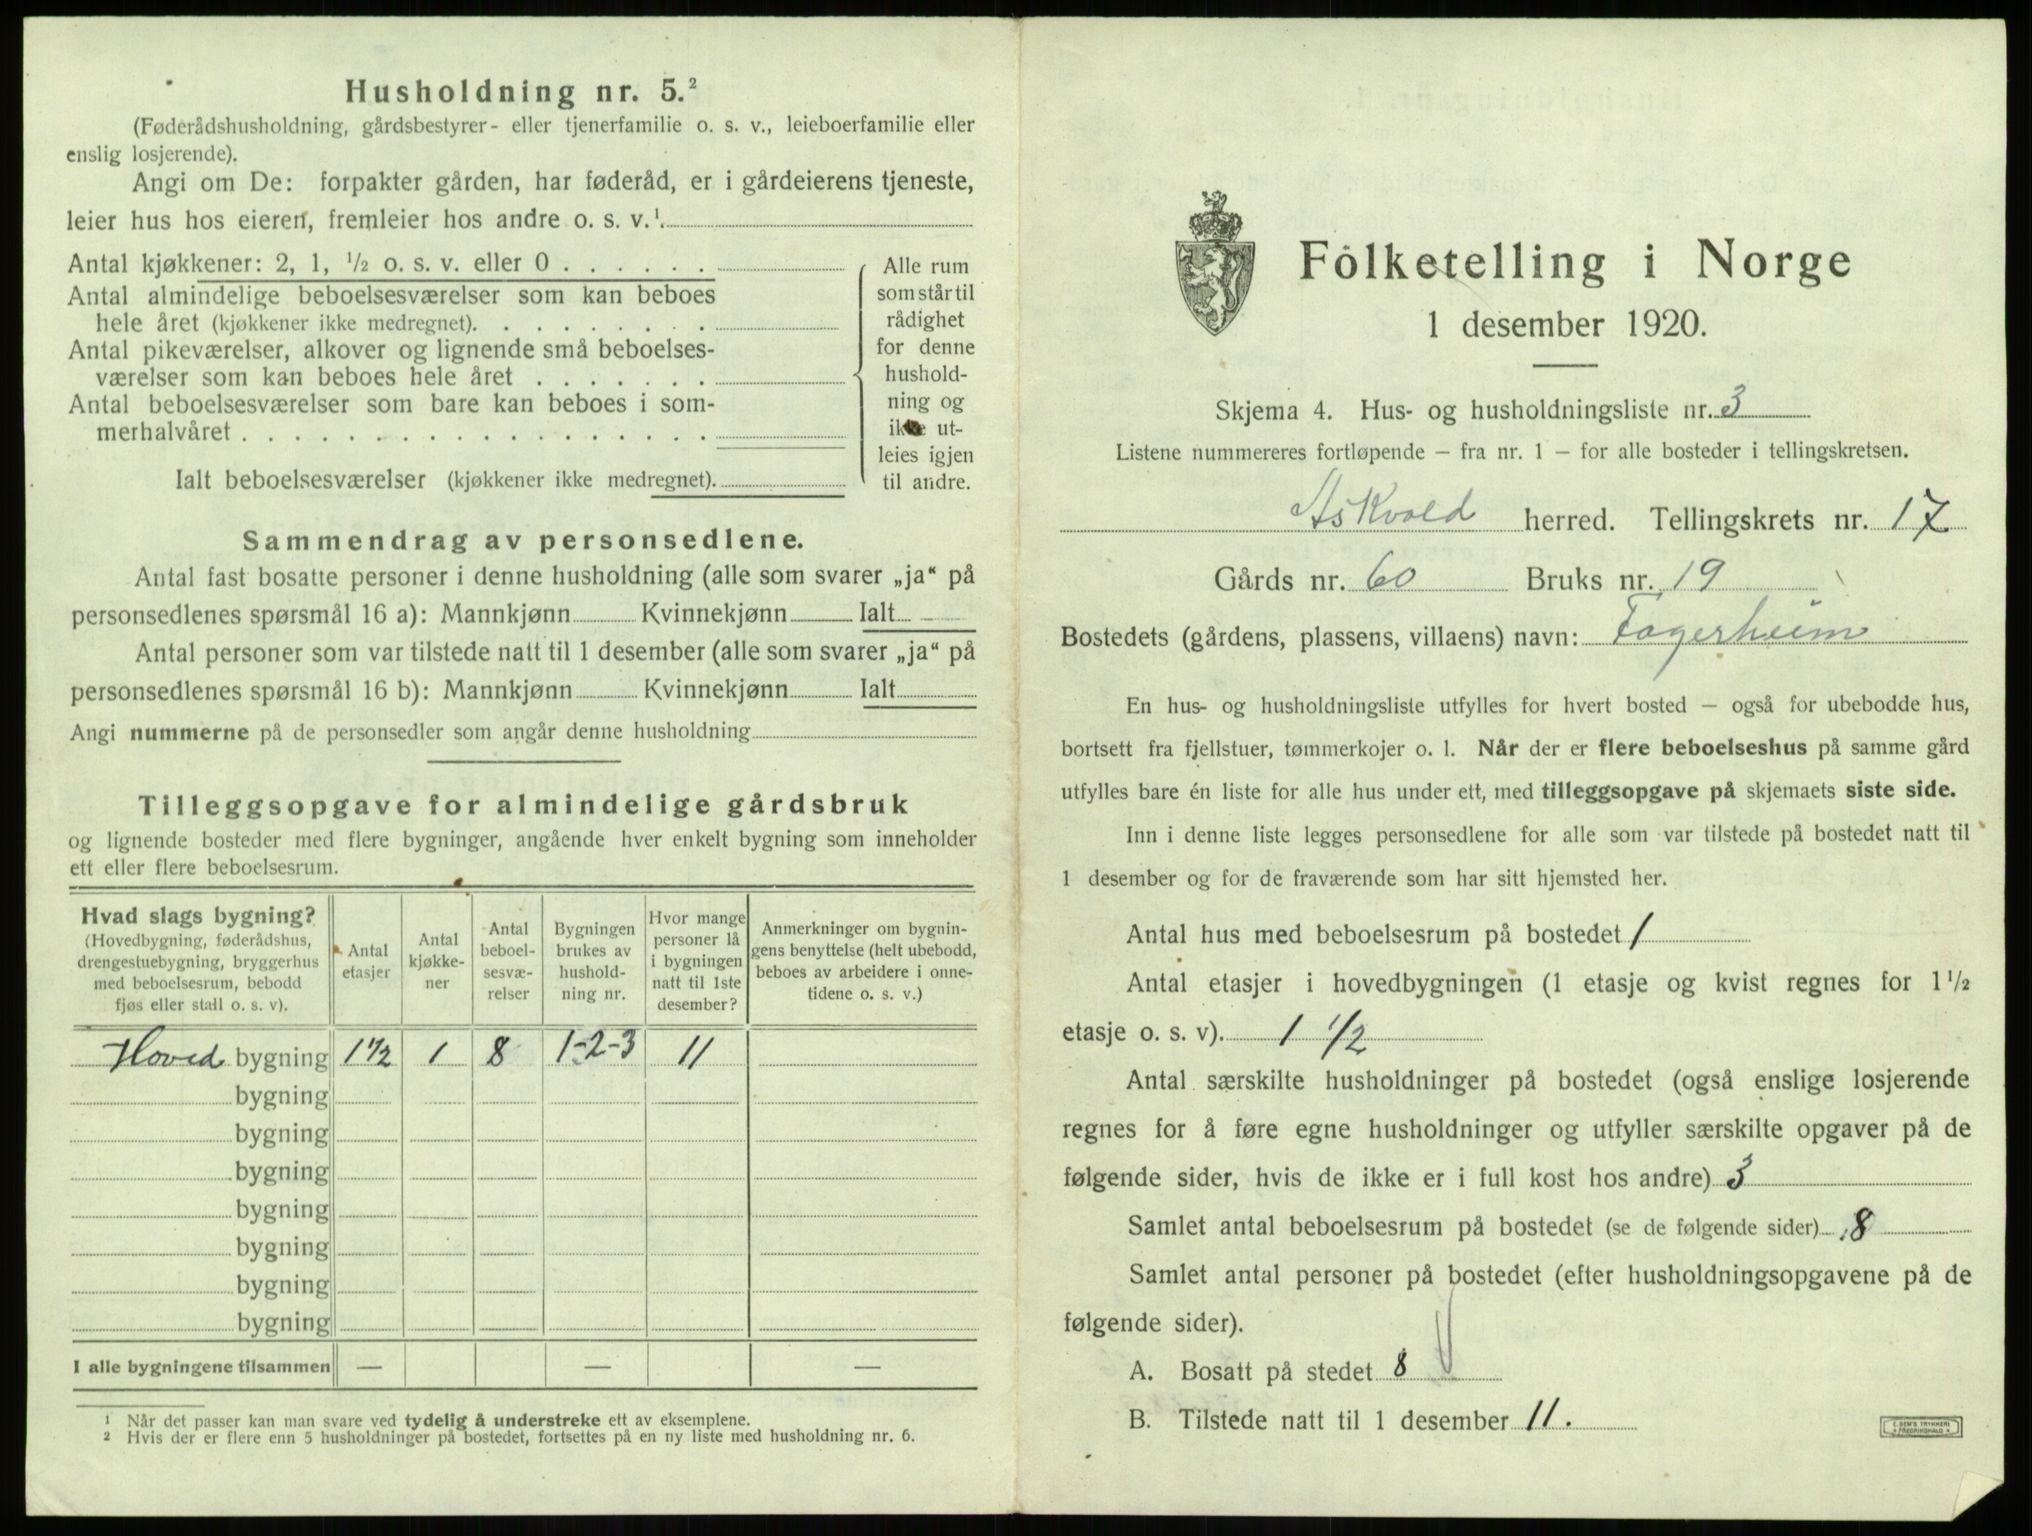 Husholdning nr. 5.²
(Føderådshusholdning, gårdsbestyrer- eller tjenerfamilie o. s. v., leieboerfamilie eller
enslig losjerende).
Angi om De: forpakter gården, har føderåd, er i gårdeierens tjeneste,
leier hus hos eieren, fremleier hos andre o. s. v.¹
Antal kjøkkener: 2, 1, ½ o. s. v. eller 0 . . . . . .
Antal almindelige beboelsesværelser som kan beboes
hele året (kjøkkener ikke medregnet). . . . . . . . .
Antal pikeværelser, alkover og lignende små beboelses-
værelser som kan beboes hele året . . . . . . .
Antal beboelsesværelser som bare kan beboes i som-
merhalvåret . . . . . . . . . . . . . . . . . .
Ialt beboelsesværelser (kjøkkener ikke medregnet).
Alle rum
som står til
rådighet
for denne
hushold-
ning og
ikke ut-
leies igjen
til andre.
Sammendrag av personsedlene.
Antal fast bosatte personer i denne husholdning (alle som svarer „ja“ på
personsedlenes spørsmål 16 a): Mannkjønn Kvinnekjønn Ialt
Antal personer som var tilstede natt til 1 desember (alle som svarer „ja“ på
personsedlenes spørsmål 16 b): Mannkjønn Kvinnekjønn Ialt
Angi nummerne på de personsedler som angår denne husholdning
Tilleggsopgave for almindelige gårdsbruk
og lignende bosteder med flere bygninger, angående hver enkelt bygning som inneholder
ett eller flere beboelsesrum.
Hvad slags bygning?
(Hovedbygning, føderådshus,
drengestuebygning, bryggerhus
med beboelsesrum, bebodd
fjøs eller stall o. s. v).
Antal
etasjer
Antal
kjøkke-
ner
Antal
beboel-
sesvæ-
relser
Bygningen
brukes av
hushold-
ning nr.
Hvor mange
personer lå
i bygningen
natt til 1ste
desember?
Anmerkninger om bygnin-
gens benyttelse (helt ubebodd,
beboes av arbeidere i onne-
tidene o. s. v.)
Hoved bygning 1½ 1 8 1-2-3 11
bygning
bygning
bygning
bygning
bygning
bygning
bygning
I alle bygningene tilsammen — — —
¹ Når det passer kan man svare ved tydelig å understreke ett av eksemplene.
² Hvis der er flere enn 5 husholdninger på bostedet, fortsettes på en ny liste med husholdning nr. 6.
Folketelling i Norge
1 desember 1920.
Skjema 4. Hus- og husholdningsliste nr. 3
Listene nummereres fortløpende — fra nr. 1 — for alle bosteder i tellingskretsen.
Askvold herred. Tellingskrets nr. 17
Gårds nr. 60 Bruks nr. 19
Bostedets (gårdens, plassens, villaens) navn: Fagerheim
En hus- og husholdningsliste utfylles for hvert bosted — også for ubebodde hus,
bortsett fra fjellstuer, tømmerkojer o. l. Når der er flere beboelseshus på samme gård
utfylles bare én liste for alle hus under ett, med tilleggsopgave på skjemaets siste side.
Inn i denne liste legges personsedlene for alle som var tilstede på bostedet natt til
1 desember og for de fraværende som har sitt hjemsted her.
Antal hus med beboelsesrum på bostedet 1
Antal etasjer i hovedbygningen (1 etasje og kvist regnes for 1½
etasje o. s. v). 1 ½
Antal særskilte husholdninger på bostedet (også enslige losjerende
regnes for å føre egne husholdninger og utfyller særskilte opgaver på de
følgende sider, hvis de ikke er i full kost hos andre) 3
Samlet antal beboelsesrum på bostedet (se de følgende sider) 8
Samlet antal personer på bostedet (efter husholdningsopgavene på de
følgende sider).
A. Bosatt på stedet 8
B. Tilstede natt til 1 desember 11.